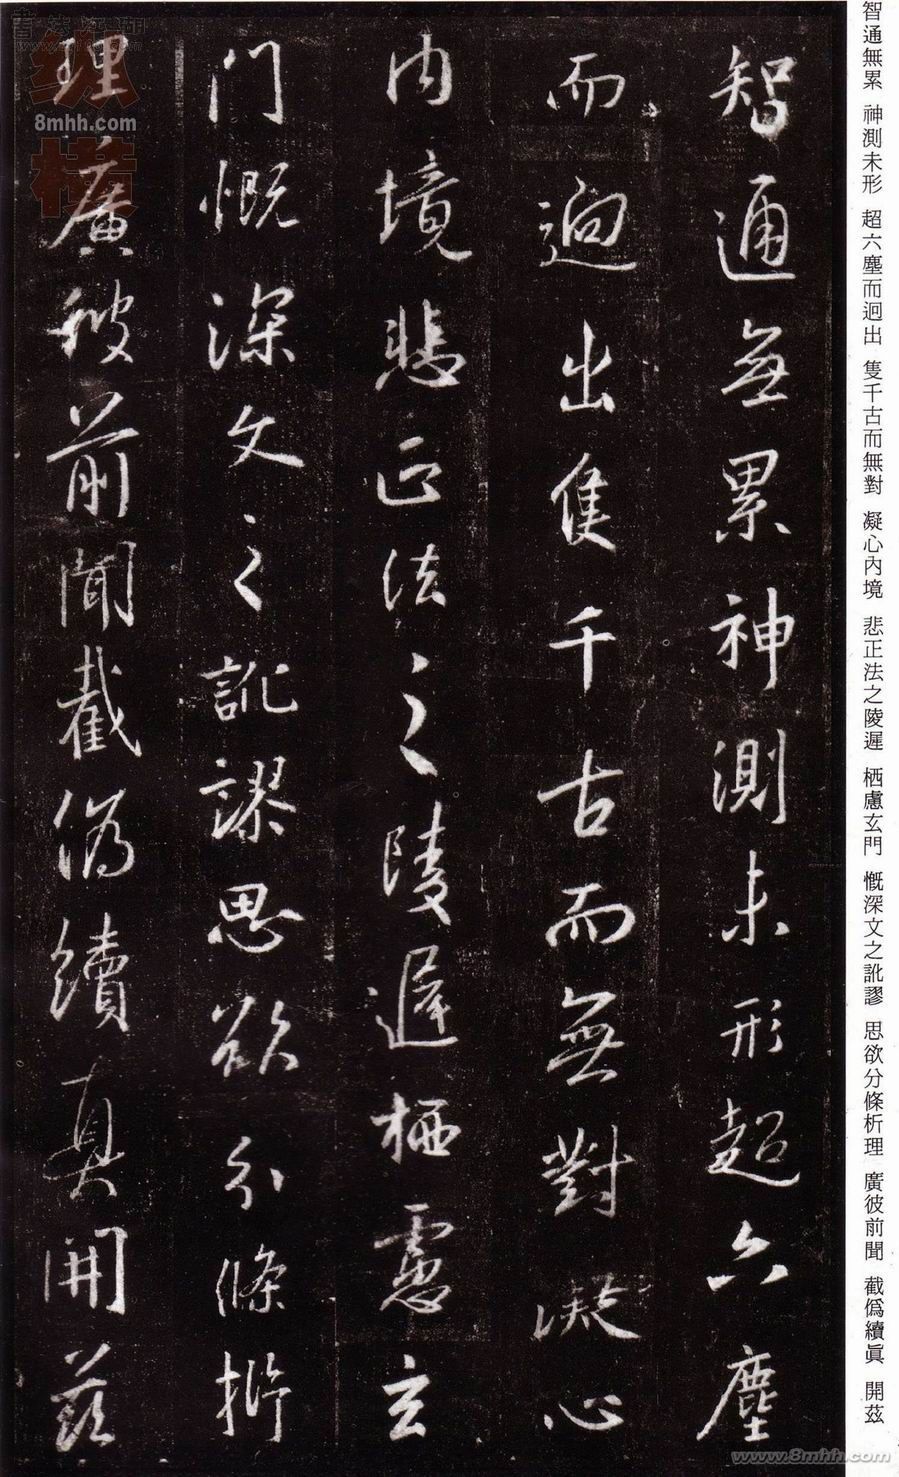 智通無累神測未形超六塵
而迥出隻千古而無對凝心
内境悲正法之陵遲栖慮玄
門慨深文之訛謬思欲分條析
理廣彼前聞截偽續真開茲
智通無累 神測未形 超六塵而迥出 隻千古而無對 凝心內境 悲正法之陵遲 栖慮玄門 慨深文之訛謬 思欲分條析理 廣彼前聞 截僞續眞 開茲
纵横
8mhh.com
www.8mhh.com